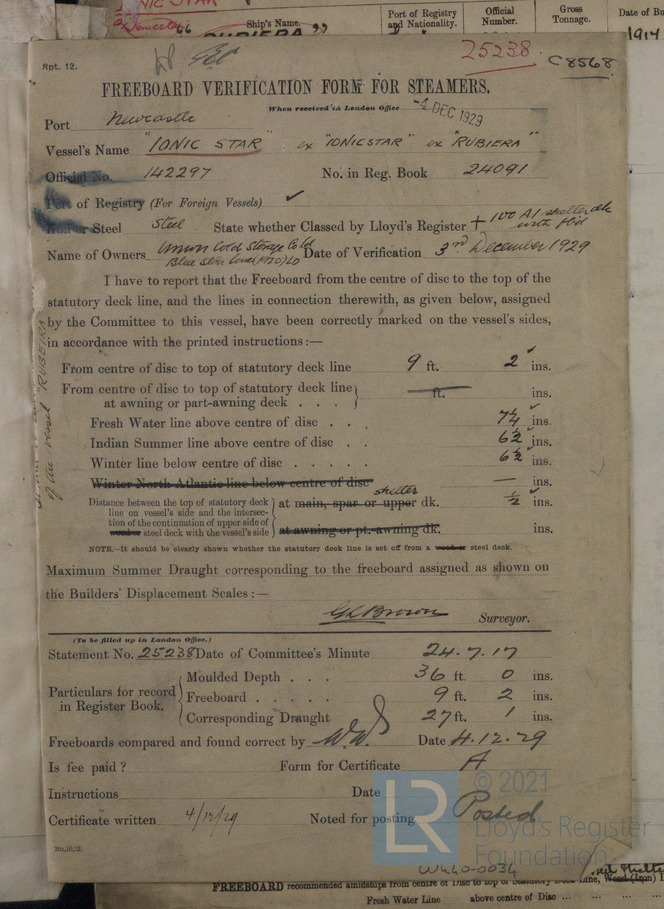 IONIC STAR
Ship's Name.
Port of Registry and Nationality.
Official Number.
Gross Tonnage.
Date of Bu
"RUBIERA"
1914
Rpt. 12.
25238
C8568
FREEBOARD VERIFICATION FORM FOR STEAMERS.
When received in London Office -4 DEC 1929
Port Newcastle
Vessel's Name "IONIC STAR" ex "IONICSTAR" ex "RUBIERA"
Official No. 142297 No. in Reg. Book 24091
Port of Registry (For Foreign Vessels) ✓
Iron or Steel Steel State whether Classed by Lloyd's Register + 100 A1 shelter dk with fbd
Name of Owners Union Cold Storage Co Ld
Blue Star Line (1920) Ld Date of Verification 3rd December 1929
I have to report that the Freeboard from the centre of disc to the top of the
statutory deck line, and the lines in connection therewith, as given below, assigned
by the Committee to this vessel, have been correctly marked on the vessel's sides,
in accordance with the printed instructions :—
From centre of disc to top of statutory deck line 9 ft. 2 ins.
From centre of disc to top of statutory deck line
at awning or part-awning deck . . . — ft. ins.
Fresh Water line above centre of disc . . . 7¼ ins.
Indian Summer line above centre of disc . 6½ ins.
Winter line below centre of disc . . . . . 6½ ins.
Winter North Atlantic line below centre of disc — ins.
shelter
Distance between the top of statutory deck
line on vessel's side and the intersec-
tion of the continuation of upper side of
wood or steel deck with the vessel's side
at main, spar or upper dk. ½ ins.
at awning or pt.-awning dk. ins.
NOTE.—It should be clearly shown whether the statutory deck line is set off from a wood or steel deck.
Maximum Summer Draught corresponding to the freeboard assigned as shown on
the Builders' Displacement Scales :—
Brown Surveyor.
of the vessel "RUBIERA"
(To be filled up in London Office.)
Statement No. 25238 Date of Committee's Minute 24.7.17
Particulars for record
in Register Book.
Moulded Depth . . . 36 ft. 0 ins.
Freeboard . . . . . 9 ft. 2 ins.
Corresponding Draught 27 ft. 1 ins.
Freeboards compared and found correct by Date 4.12.29
Is fee paid ? Form for Certificate A
Instructions Date
Certificate written 4/12/29 Noted for posting Posted
LR
© 2021
Lloyd's Register
Foundation
W440-0034
FREEBOARD recommended amidships from centre of Disc to top of Statutory Deck Line, Wood (Iron)
Fresh Water Line above centre of Disc